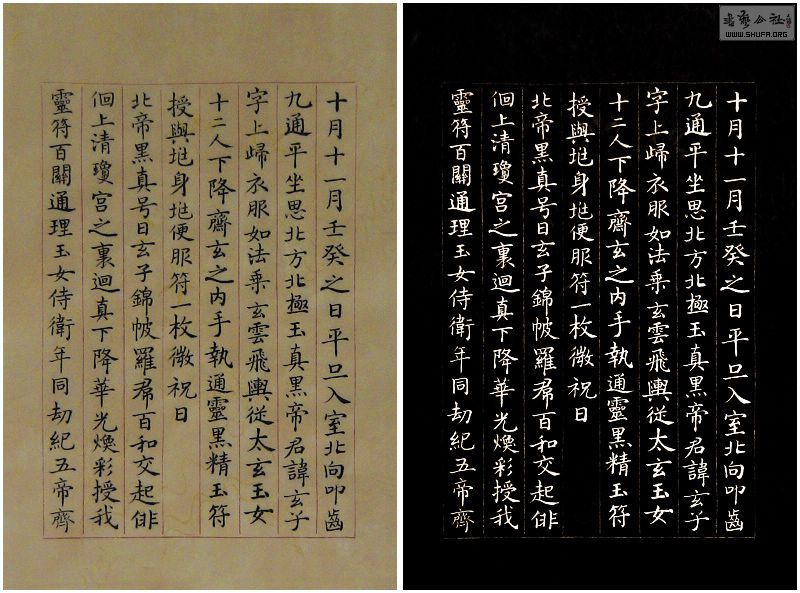 十月十一月壬癸之日平旦入室北向叩齒
九通平坐思北方北極玉真黑帝君諱玄子
字上歸衣服如法乗玄雲飛輿從太玄玉女
十二人下降齋玄之内手執通靈黑精玉符
授與垗身垗便服符一枚微祝曰
北帝黑真号曰玄子錦帔羅帬百和交起俳
佪上清瓊宮之裏迴真下降華光煥彩授我
靈符百關通理玉女侍衛年同劫紀五帝齊
書藝公社
WWW.SHUFA.ORG
十月十一月壬癸之日平旦入室北向叩齒
九通平坐思北方北極玉真黑帝君諱玄子
字上歸衣服如法乗玄雲飛輿從太玄玉女
十二人下降齋玄之内手執通靈黑精玉符
授與垗身垗便服符一枚微祝曰
北帝黑真号曰玄子錦帔羅帬百和交起俳
佪上清瓊宮之裏迴真下降華光煥彩授我
靈符百關通理玉女侍衛年同劫紀五帝齊